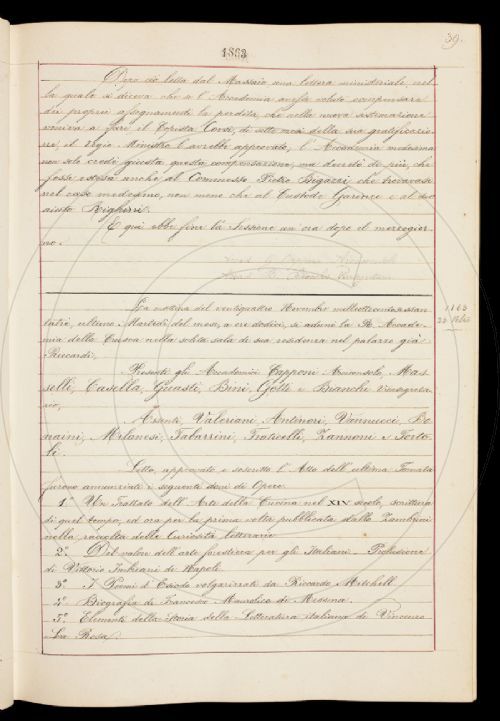 39.
1863
Dopo ciò letta dal Massaio una lettera ministeriale, nel-
la quale si diceva che se l'Accademia avesse voluto compensare
dei proprii assegnamenti la perdita, che nella nuova sistemazione
veniva a fare il Copista Corsi, di sette mesi della sua gratificazio-
ne, il Regio Ministro l'avrebbe approvato, l'Accademia medesima
non solo credè giusta questa compensazione, ma decretò di più, che
fosse estesa anche al Commesso Pietro Bigazzi, che trovavasi
nel caso medesimo, non meno che al Custode e al suo
aiuto Righini.
E qui ebbe fine la Sessione un'ora dopo il mezzogior-
no.
La mattina del ventiquattro Novembre milleottocentosessan-
tatre, ultimo Martedì del mese, a ore dodici, si adunò la R. Accade-
mia della Crusca nella solita sala di sua residenza nel palazzo già
Riccardi.
1163
Presenti gli Accademici Capponi Arciconsolo, Mas-
selli, Casella, Guasti, Bini, Gotti e Bianchi Vicesegreta-
rio,
Assenti, Valeriani, Antinori, Vannucci, Bo-
naini, Milanesi, Tabarrini, Fraticelli, Zannoni e Torto-
li.
Letto, approvato e soscritto l'Atto dell'ultima Tornata
furono annunziati i seguenti doni di Opere.
1.° Un Trattato dell'Arte della Cucina nel XIV secolo, scrittura
di quel tempo, ed ora per la prima volta pubblicata dallo Zambrini
nella raccolta delle Curiosità letterarie
2.° Del valore dell'arte forestiera per gli Italiani _ Prolusione
di Vittorio Imbriani di Napoli.
3.° I Poemi d'Esiodo volgarizzati da Riccardo Mitchell.
4.° Biografia di Francesco Maurolico di Messina.
5.° Elementi della Storia della Letteratura italiana di Vincenzo
La Rosa.